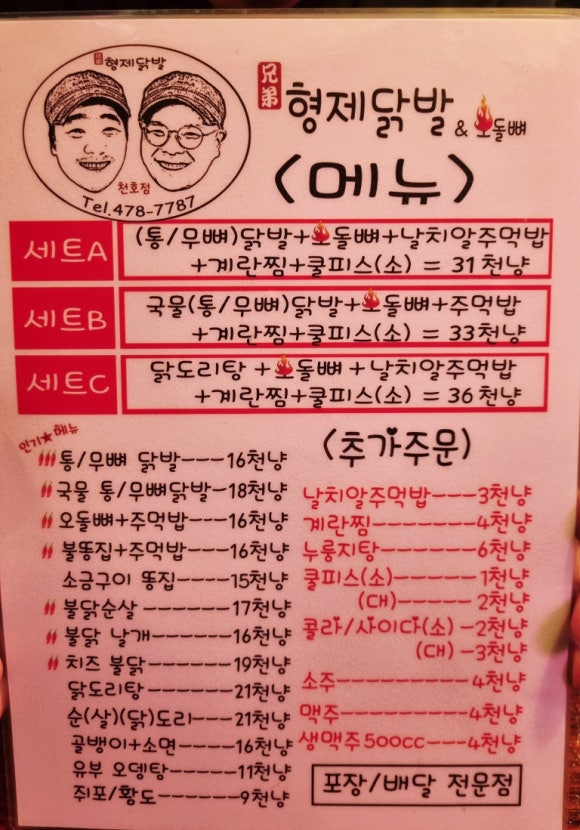 兄弟 형제닭발
천호점
Tel.478-7787
兄弟 형제닭발 & 오돌뼈
<메뉴>
세트A (통/무뼈)닭발+오돌뼈+날치알주먹밥
+계란찜+쿨피스(소) = 31천냥
세트B 국물(통/무뼈)닭발+오돌뼈+주먹밥
+계란찜+쿨피스(소) = 33천냥
세트C 닭도리탕 +오돌뼈 +날치알주먹밥
+계란찜+쿨피스(소) = 36천냥
인기★메뉴
통/무뼈 닭발---16천냥
국물 통/무뼈닭발-18천냥
오돌뼈+주먹밥---16천냥
불똥집+주먹밥---16천냥
소금구이 똥집----15천냥
불닭순살 -------17천냥
불닭 날개-------16천냥
치즈 불닭-------19천냥
닭도리탕-------21천냥
순(살)(닭)도리---21천냥
골뱅이+소면-----16천냥
유부 오뎅탕-----11천냥
쥐포/황도-------9천냥
(추가주문)
날치알주먹밥---3천냥
계란찜-------4천냥
누룽지탕------6천냥
쿨피스(소)-----1천냥
(대)----- 2천냥
콜라/사이다(소) -2천냥
(대) -3천냥
소주--------4천냥
맥주--------4천냥
생맥주500cc---4천냥
포장/배달 전문점